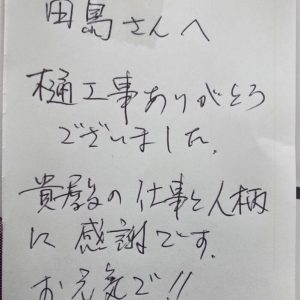 田島さんへ
樋工事ありがとう
ございました.
貴殿の仕事と人柄
に感謝です.
お元気で!!